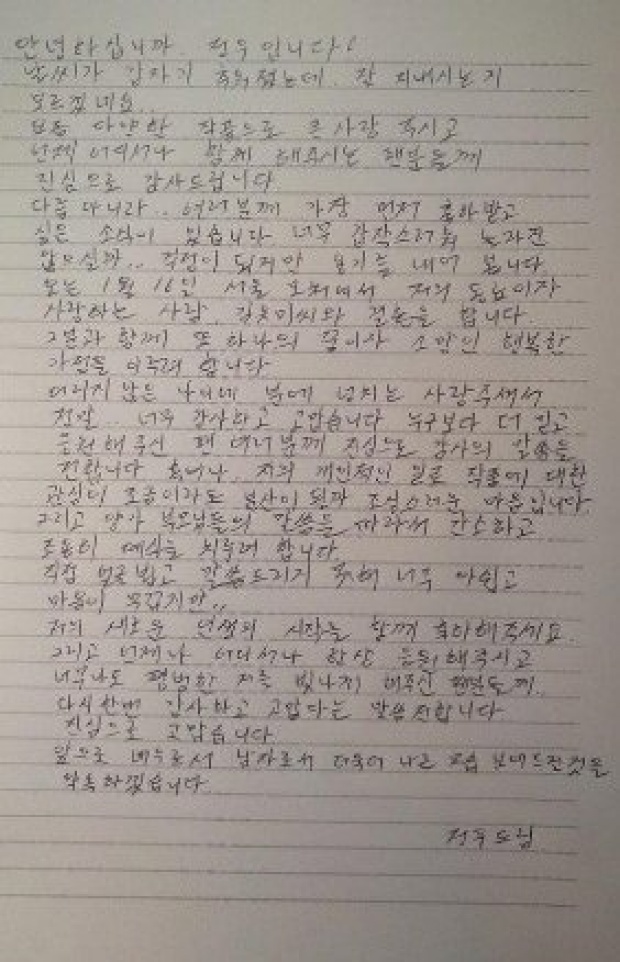 안녕하십니까. 정우입니다!
날씨가 갑자기 추워졌는데. 잘 지내시는지
모르겠네요..
다양한 작품으로 큰 사랑 주시고
언제 어디서나 함께 해주시는 팬분들께
진심으로 감사드립니다
다름 아니라.. 여러분께 가장 먼저 축하받고
싶은 소식이 있습니다 너무 갑작스러워 놀라진
않으실까.. 걱정이 되지만 용기를 내어 봅니다.
오는 1월 16일 서울 모처에서 저의 이자
사랑하는 사람. 김유미씨와 결혼을 합니다.
그분과 함께 또 하나의 꿈이자 소망인 행복한
가정을 이루려 합니다
어리지 않은 나이에 분에 넘치는 사랑주셔서
정말.. 너무 감사하고 고맙습니다 누구보다 더 믿고
응원해주신 팬 여러분께 진심으로 감사의 말씀을
전합니다 혹여나. 저의 개인적인 일로 작품에 대한
관심이 조금이라도 분산이 될까 조심스러운 마음입니다.
그리고 양가 부모님들의 말씀을 따라서 간소하고
조용히 예식을 치루려 합니다.
직접 얼굴뵙고 말씀드리지 못해 너무 아쉽고
마음이 무겁지만..
저의 새로운 인생의 시작을 함께 축하해주세요.
그리고 언제나 어디서나 항상 응원해주시고
너무나도 평범한 저를 빛나게 해주신 팬분들께..
다시한번 감사하고 고맙다는 말씀전합니다
진심으로 고맙습니다.
앞으로 배우로서 남자로서 더욱더 나은 모습 보내드릴것을
약속하겠습니다.
정우드림